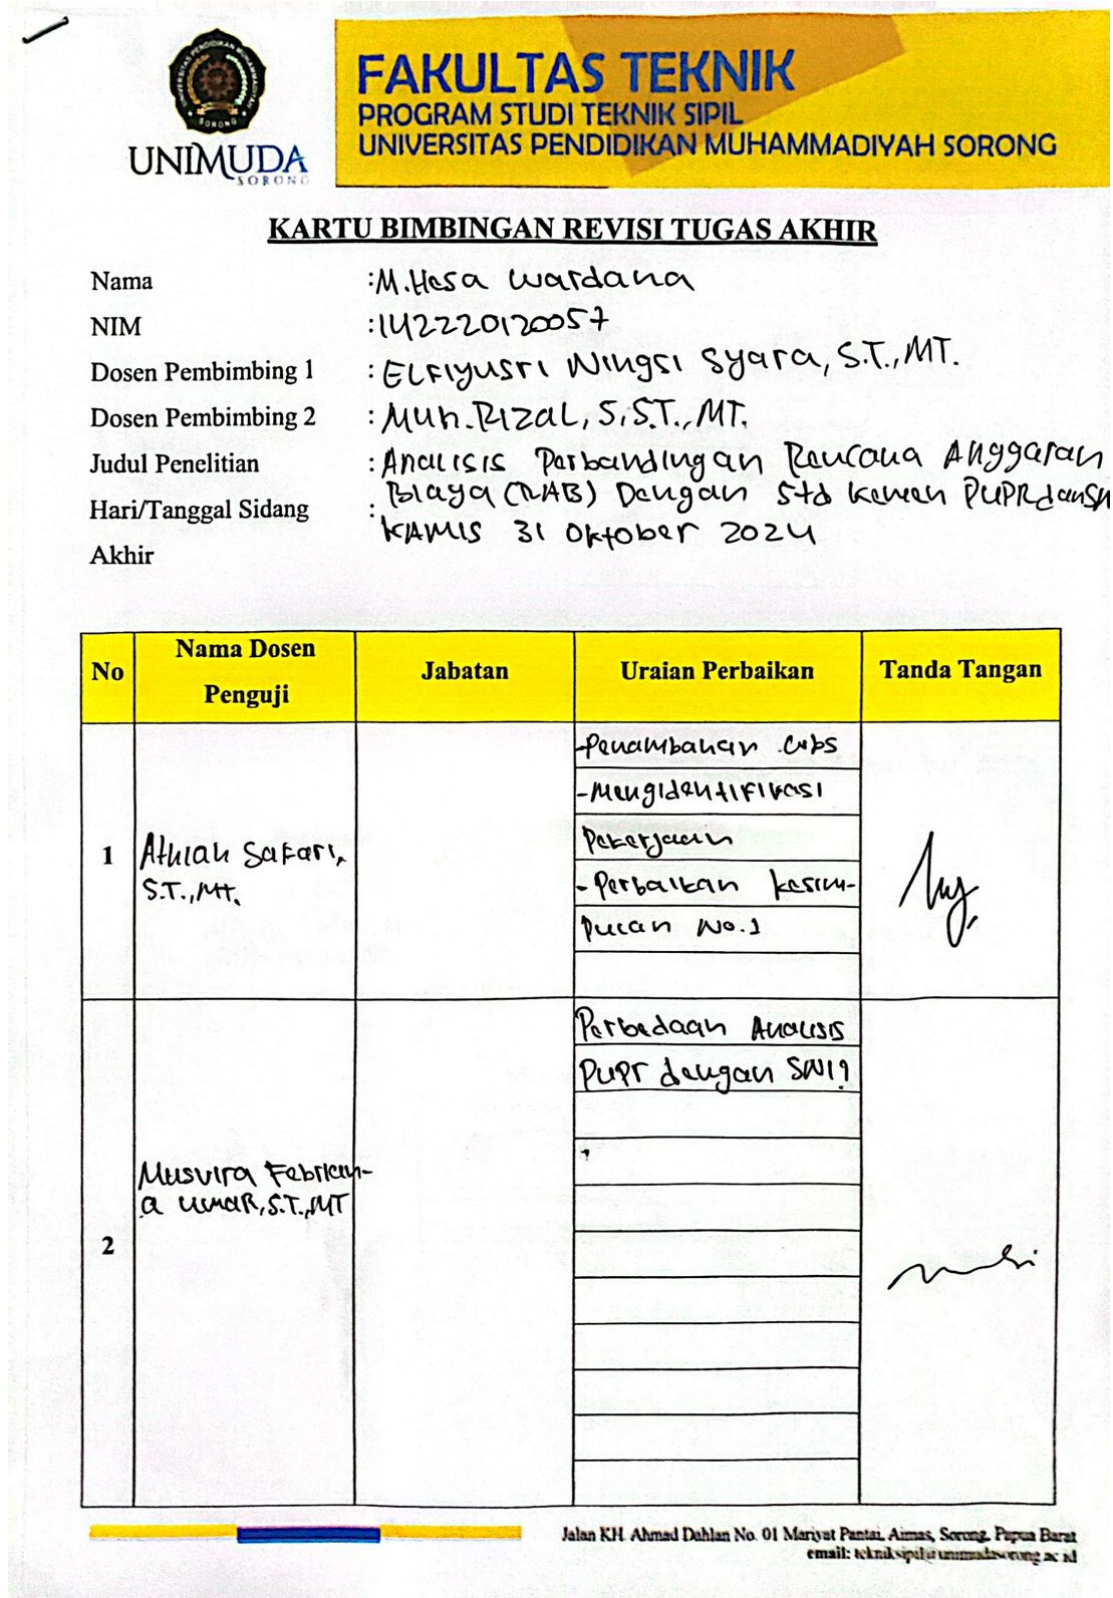 FAKULTAS TEKNIK
PROGRAM STUDI TEKNIK SIPIL
UNIVERSITAS PENDIDIKAN MUHAMMADIYAH SORONG
UNIVERSITAS PENDIDIKAN MUHAMMADIYAH
SORONG
UNIMUDA
SORONG
KARTU BIMBINGAN REVISI TUGAS AKHIR
Nama : M. Hesa Wardana
NIM : 142220120057
Dosen Pembimbing 1 : ELFIYUSRI Ningsi Syara, S.T., MT.
Dosen Pembimbing 2 : Muh. RIZAL, S.ST., MT.
Judul Penelitian : Analisis Perbandingan Rencana Anggaran
Biaya (RAB) Dengan Std Kemen PUPR dan SN
Hari/Tanggal Sidang : KAMIS 31 Oktober 2024
Akhir
No Nama Dosen Penguji Jabatan Uraian Perbaikan Tanda Tangan
1 Athiah Safari, S.T., MT.
-Penambahan WBS
-Mengidentifikasi
Pekerjaan
-Perbaikan kesim-
pulan No.1
2 Musvira Febrian-
a Umar, S.T., MT
Perbedaan Analisis
PUPR dengan SNI?
Jalan KH. Ahmad Dahlan No. 01 Mariyat Pantai, Aimas, Sorong, Papua Barat
email: tekniksipil@unimudasorong.ac.id